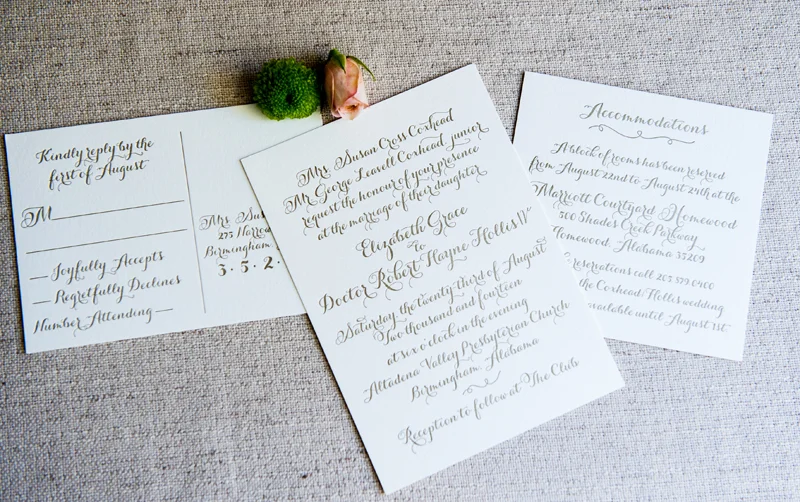 Kindly reply by the
first of August
M
Joyfully Accepts
Regretfully Declines
Number Attending
Mrs.
275
Birmingham,
3.5.2
Mrs. Susan Cross Coxhead
Mr. George Leavell Coxhead, junior
request the honour of your presence
at the marriage of their daughter
Elizabeth Grace
to
Doctor Robert Hayne Hollis IV
Saturday the twenty-third of August
Two thousand and fourteen
at six o'clock in the evening
Altadena Valley Presbyterian Church
Birmingham, Alabama
Reception to follow at The Club
Accommodations
A block of rooms has been reserved
from August 22nd to August 24th at the
Marriott Courtyard Homewood
500 Shades Creek Parkway
Homewood, Alabama 35209
reservations call 205.879.0400
the Coxhead/Hollis wedding
available until August 1st